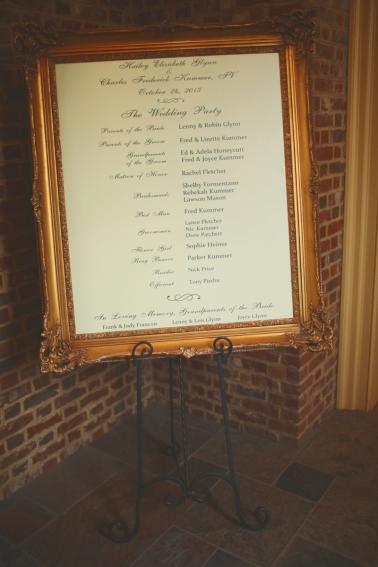 Hailey Elizabeth Glynn
&
Charles Frederick Kummer, IV
October 24, 2015
The Wedding Party
Parents of the Bride Lenny & Robin Glynn
Parents of the Groom Fred & Lizette Kummer
Grandparents of the Groom Ed & Adela Honeycutt
Fred & Joyce Kummer
Matron of Honor Rachel Fletcher
Bridesmaids Shelby Formentano
Rebekah Kummer
Lawson Mason
Best Man Fred Kummer
Groomsmen Lance Fletcher
Nic Kummer
Drew Patchett
Flower Girl Sophie Heiner
Ring Bearer Parker Kummer
Reader Nick Price
Officiant Tony
In Loving Memory, Grandparents of the Bride
Frank & Jody Francois Lenny & Lois Glynn Joyce Glynn